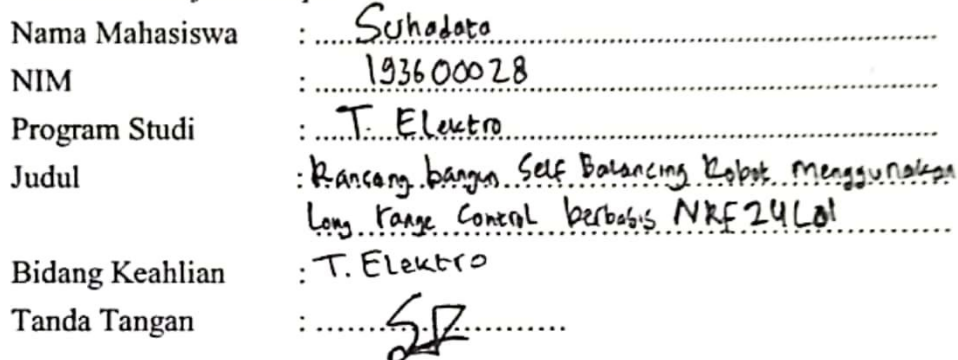 Nama Mahasiswa : Suhadata
NIM : 193600028
Program Studi : T. Elektro
Judul : Rancang bangun Self Balancing Robot menggunakan
Long range Control berbasis NRF24L01
Bidang Keahlian : T. Elektro
Tanda Tangan :